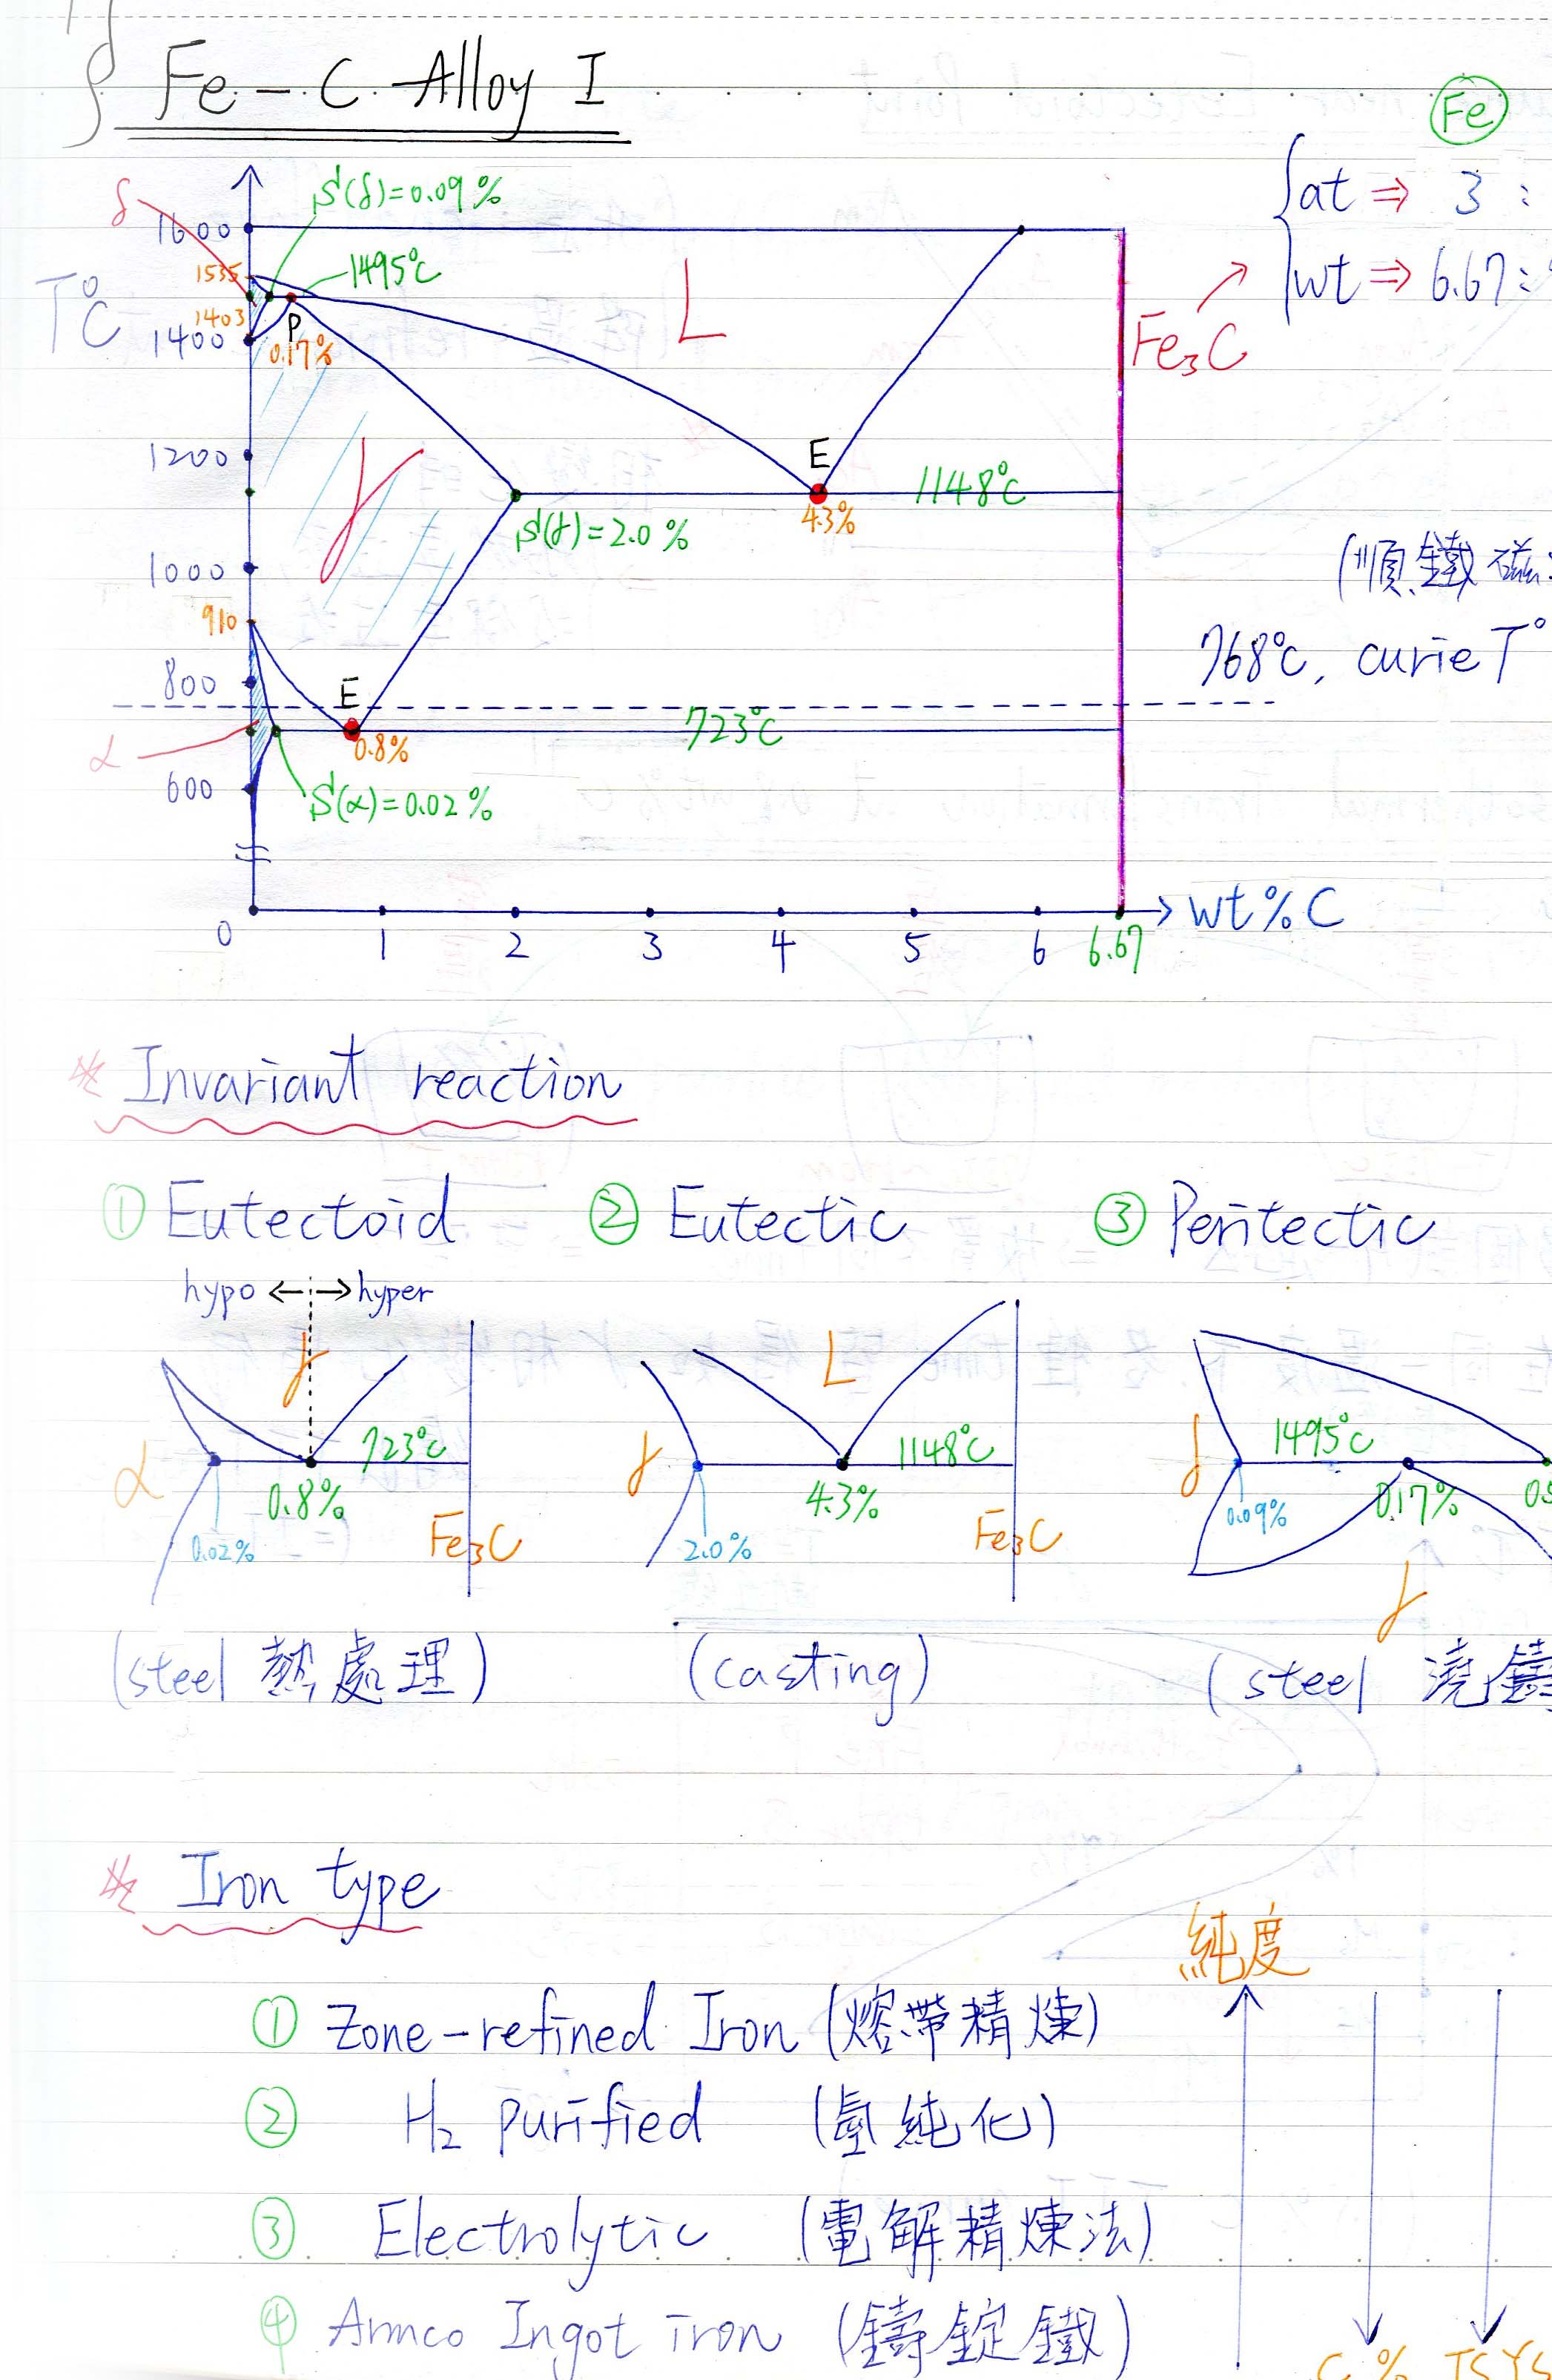 § Fe-C Alloy I
Fe
at ⇒ 3 :
wt ⇒ 6.67 :
δ
S(δ)=0.09%
1600
1535
1495°C
T°C
1403
1400
P
0.17%
L
Fe₃C
1200
γ
E
4.3%
1148°C
S(γ)=2.0%
1000
(順鐵磁
910
768°C, curie T°
800
E
723°C
0.8%
α
600
S(α)=0.02%
0 1 2 3 4 5 6 6.67
wt%C
Invariant reaction
① Eutectoid ② Eutectic ③ Peritectic
hypo ← → hyper
γ L
α 723°C γ 1148°C δ 1495°C
0.02% 0.8% Fe₃C 2.0% 4.3% Fe₃C 0.09% 0.17%
γ
(steel 熱處理) (casting) (steel 澆鑄
Iron type
純度
① Zone-refined Iron (熔帶精煉)
② H₂ purified (氫純化)
③ Electrolytic (電解精煉法)
④ Armco Ingot iron (鑄錠鐵)
C% TS YS